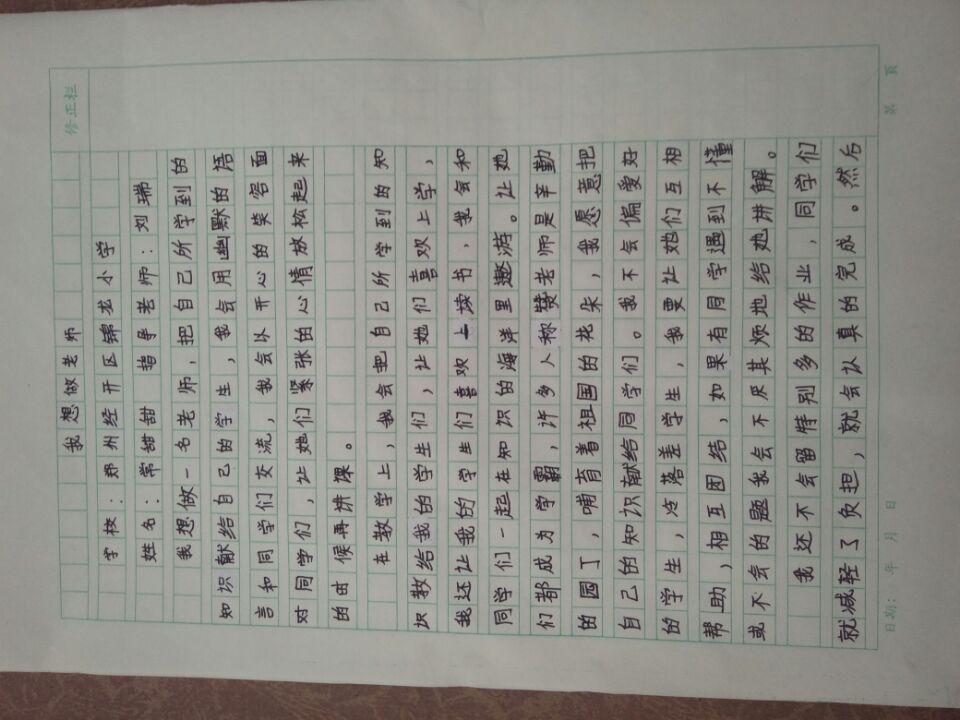 修正栏
我想做老师
学校：郑州经开区锦龙小学
姓名：常甜甜 指导老师：刘瑞
我想做一名老师，把自己所学到的
知识献给自己的学生，我会用幽默的语
言和同学们交流，我会以开心的笑容面
对同学们，让她们紧张的心情放松起来
的由候再讲课。
在教学上，我会把自己所学到的知
识教给我的学生们，让她们喜欢上学，
我还让我的学生们喜欢上读书，我会和
同学们一起在知识的海洋里遨游。让她
们都成为学霸，许多人称赞老师是辛勤
的园丁，哺育着祖国的花朵，我愿意把
自己的知识献给同学们。我不会偏爱好
的学生，冷落差学生，我要让她们互相
帮助，相互团结，如果有同学遇到不懂
或不会的题我会不厌其烦地给她讲解。
我还不会留特别多的作业，同学们
就减轻了负担，就会认真的完成。然后
日期： 年 月 日 第 页